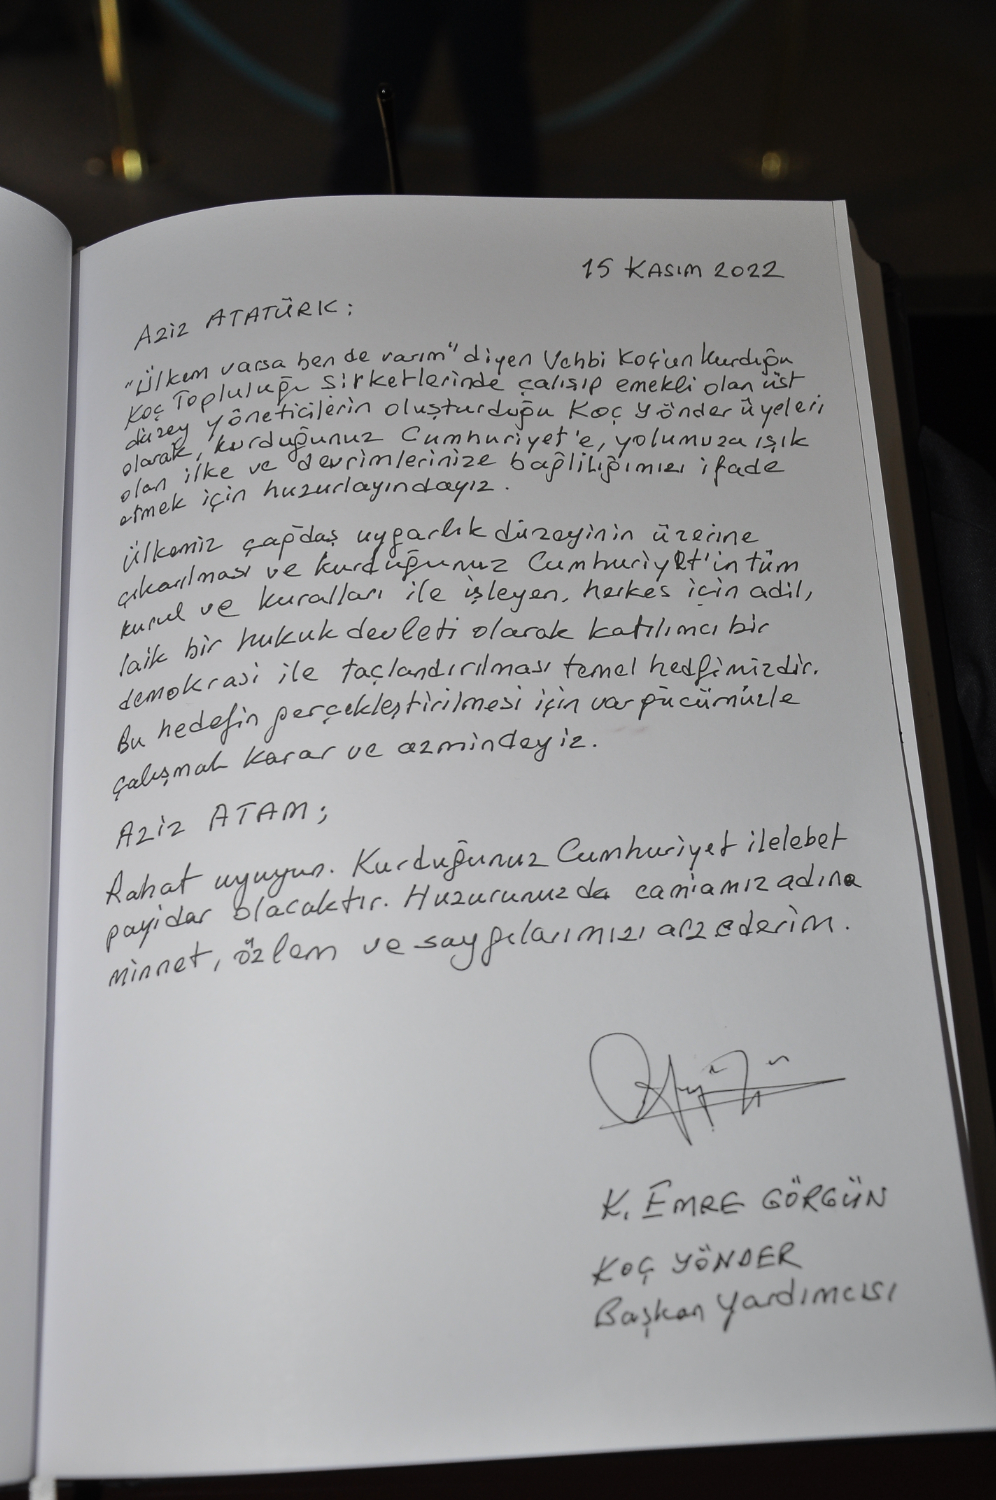 15 KASIM 2022
Aziz ATATÜRK;
"Ülkem varsa ben de varım" diyen Vehbi Koç'un kurduğu
Koç Topluluğu Şirketlerinde çalışıp emekli olan üst
düzey yöneticilerin oluşturduğu Koç Yönder üyeleri
olarak, kurduğunuz Cumhuriyet'e, yolumuza ışık
olan ilke ve devrimlerinize bağlılığımızı ifade
etmek için huzurlayındayız.
Ülkemiz çağdaş uygarlık düzeyinin üzerine
çıkarılması ve kurduğunuz Cumhuriyet'in tüm
kurul ve kuralları ile işleyen, herkes için adil,
laik bir hukuk devleti olarak katılımcı bir
demokrasi ile taçlandırılması temel hedfimizdir.
Bu hedefin gerçekleştirilmesi için var gücümüzle
çalışmak karar ve azmindeyiz.
Aziz ATAM;
Rahat uyuyun. Kurduğunuz Cumhuriyet ilelebet
payidar olacaktır. Huzurunuzda camiamız adına
minnet, özlem ve saygılarımızı arz ederim.
K. EMRE GÖRGÜN
KOÇ YÖNDER
Başkan Yardımcısı